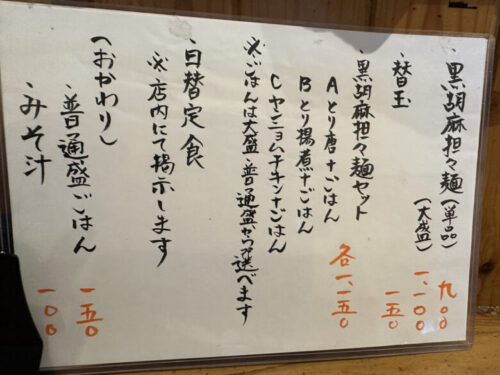 ・黒胡麻担々麺(単品) 九〇〇
(大盛) 一、一〇〇
・替玉 一五〇
・黒胡麻担々麺セット 各一、一五〇
Aとり唐+ごはん
Bとり揚煮+ごはん
Cヤンニョムチキン+ごはん
※ごはんは大盛・普通盛からで選べます
・日替定食
※店内にて掲示します
(おかわり)
・普通盛ごはん 一五〇
・みそ汁 一〇〇